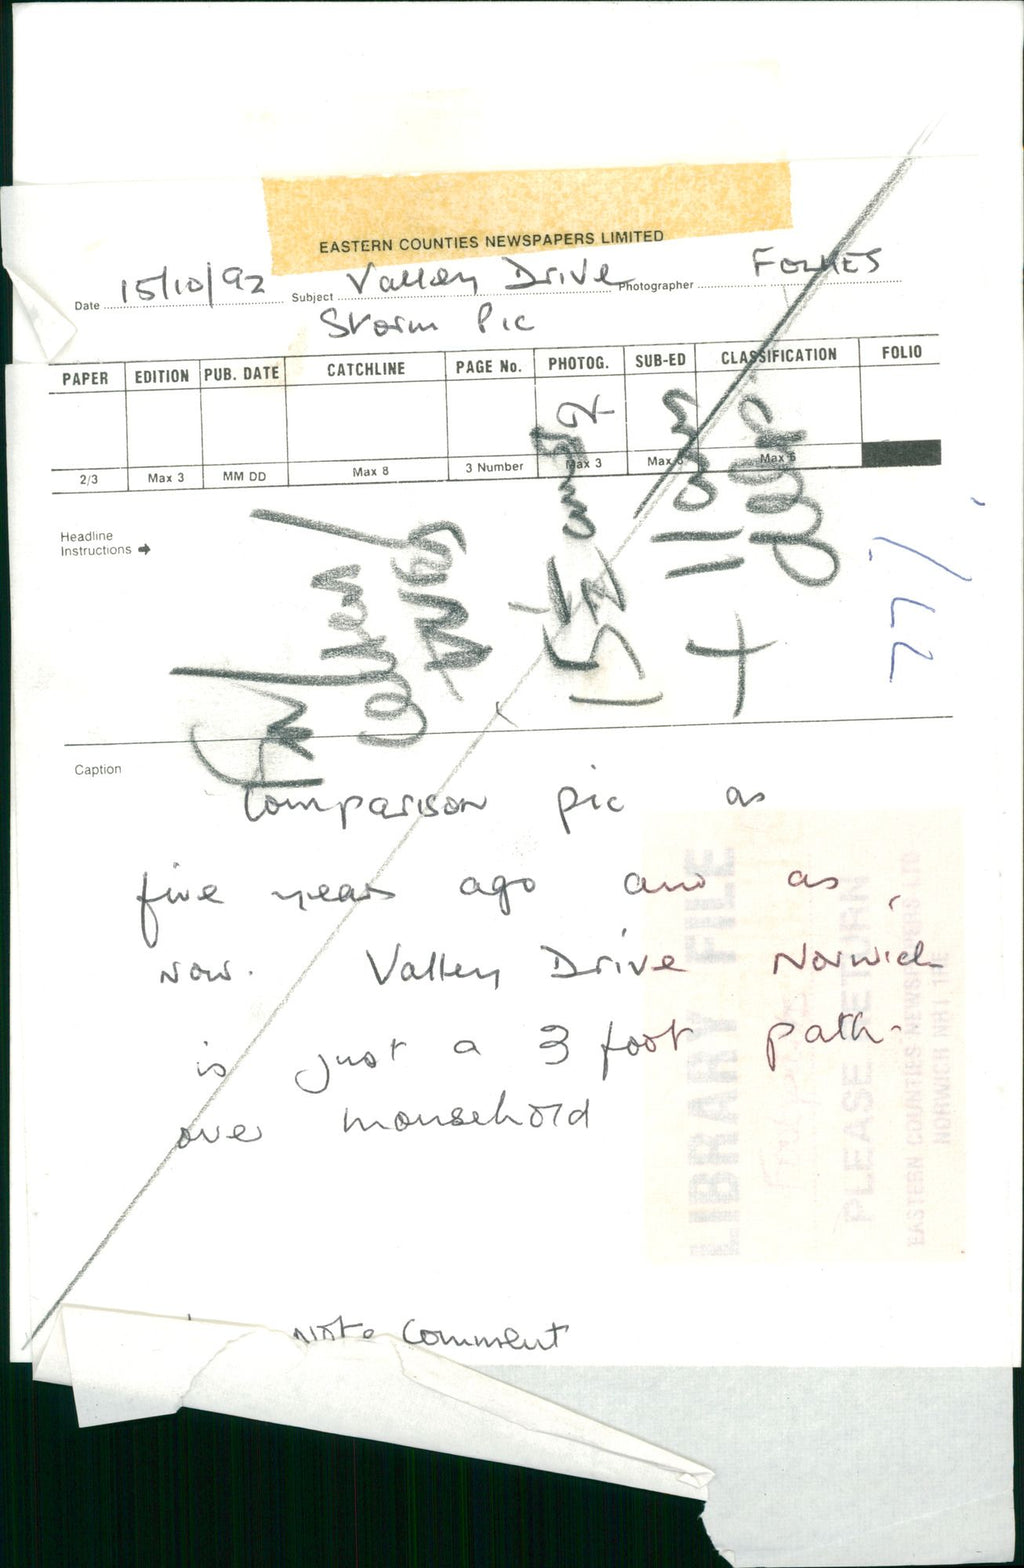 EASTERN COUNTIES NEWSPAPERS LIMITED
Date 15/10/92 Subject Valley Drive Photographer FOLKES
Storm Pic
PAPER EDITION PUB. DATE CATCHLINE PAGE No. PHOTOG. SUB-ED CLASSIFICATION FOLIO
2/3 Max 3 MM DD Max 8 3 Number Max 3 Max 3 Max 6
Headline
Instructions
77%
Caption
Comparison pic as
five years ago and as
now. Valley Drive Norwich
is just a 3 foot path
over mousehold
Note Comment
LIBRARY FILE
PLEASE RETURN
EASTERN COUNTIES NEWSPAPERS LTD
NORWICH NR1 1RE